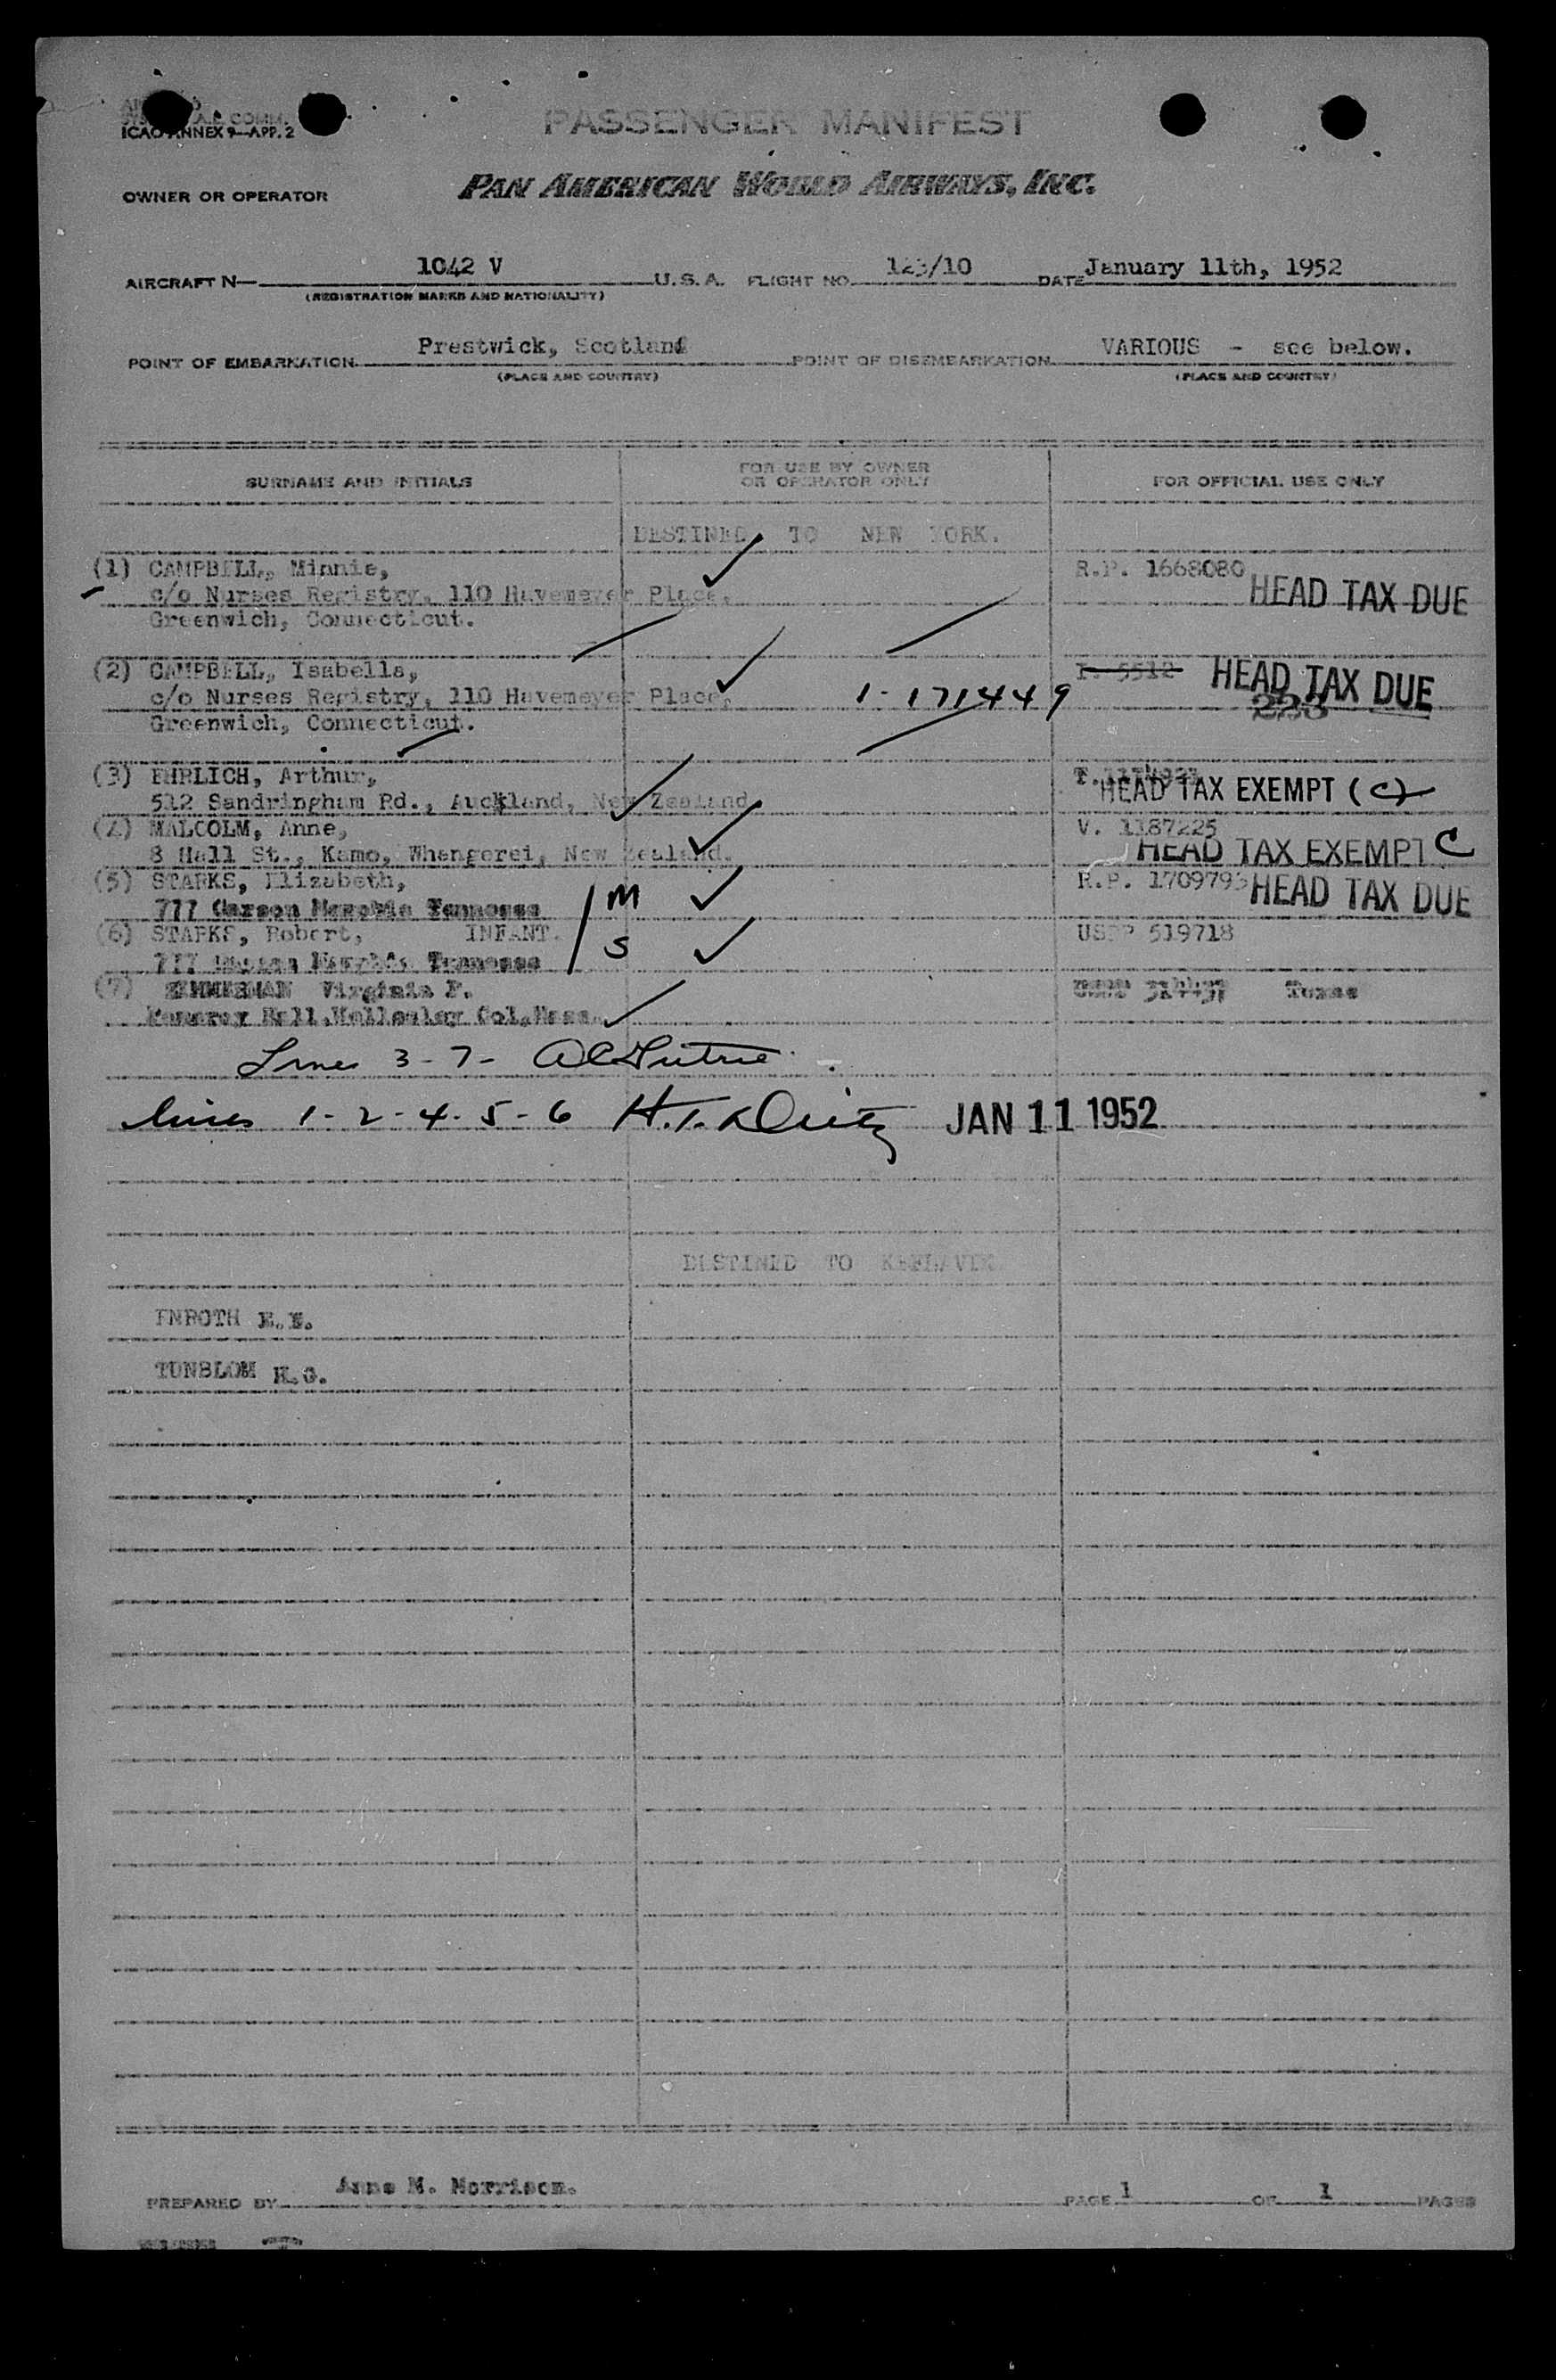 ICAO ANNEX 9—APP. 2
PASSENGER MANIFEST
OWNER OR OPERATOR
PAN AMERICAN WORLD AIRWAYS, INC.
AIRCRAFT N— 1042 V U.S.A. FLIGHT NO. 123/10 DATE January 11th, 1952
(REGISTRATION MARKS AND NATIONALITY)
POINT OF EMBARKATION Prestwick, Scotland POINT OF DISEMBARKATION VARIOUS - see below.
(PLACE AND COUNTRY) (PLACE AND COUNTRY)
SURNAME AND INITIALS
FOR USE BY OWNER
OR OPERATOR ONLY
FOR OFFICIAL USE ONLY
DESTINED TO NEW YORK.
(1) CAMPBELL, Minnie, R.P. 1668080
c/o Nurses Registry, 110 Havemeyer Place, HEAD TAX DUE
Greenwich, Connecticut.
(2) CAMPBELL, Isabella, I. 5512 HEAD TAX DUE
c/o Nurses Registry, 110 Havemeyer Place, 1-171449
Greenwich, Connecticut.
(3) EHRLICH, Arthur,
512 Sandringham Rd., Auckland, New Zealand. HEAD TAX EXEMPT (C)
(4) MALCOLM, Anne, V. 1187225
8 Hall St., Kamo, Whangerei, New Zealand. HEAD TAX EXEMPT C
(5) STARKS, Elizabeth, M R.P. 1709793 HEAD TAX DUE
777 Carson Memphis Tennesse
(6) STARKS, Robert, INFANT. S USPP 519718
777 Carson Memphis Tennesse
(7) ZIMMERMAN Virginia P. Texas
Hall, Wellesley Col, Mass.
Lines 3-7-
lines 1-2-4-5-6 JAN 11 1952
DESTINED TO KEFLAVIK
ENROTH E.E.
TUNBLOM H.G.
PREPARED BY Anne M. Morrison. PAGE 1 OF 1 PAGES